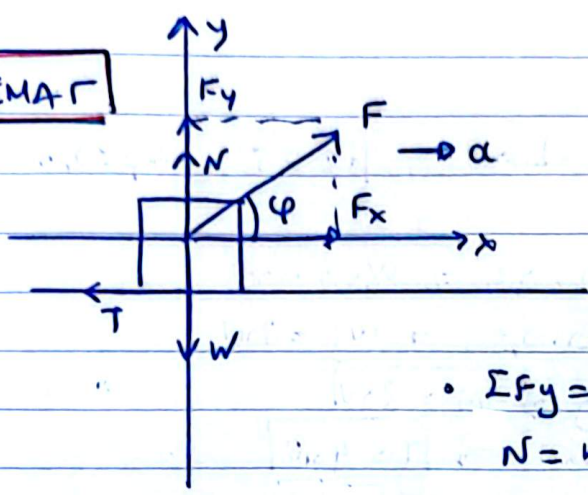 y
ΕΜΑ Γ
Fy
F
N
α
φ
Fx
x
T
W
• ΣFy =
N =